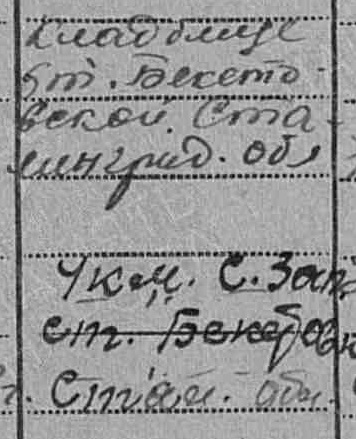 кладбище
ст. Бекето-
вской Ста-
линград. обл
4 км. С. Зап
ст. Бекетовк
Стал. обл.